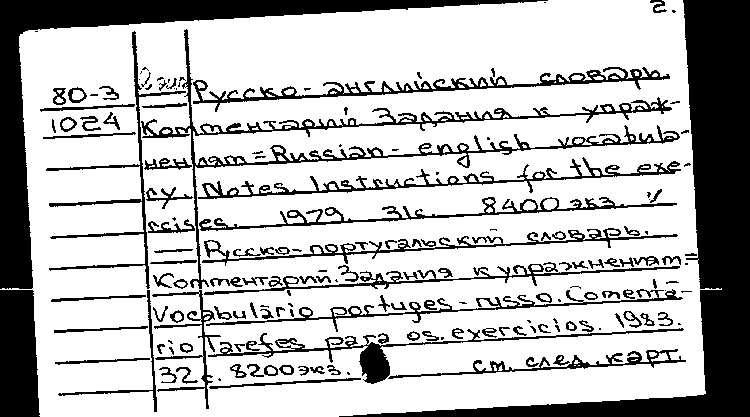 2.
80-3 2 экз Русско-английский словарь.
1024 Комментарий Задания к упраж-
нениям = Russian-english vocabula-
ry. Notes. Instructions for the exe-
rcises. 1979. 31с. 8400 экз.
— Русско-португальский словарь.
Комментарий. Задания к упражнениям. =
Vocabulário portuges-russo. Comentá-
rio Tarefes para os. exercicios. 1983.
32с. 8200 экз. см. след. карт.